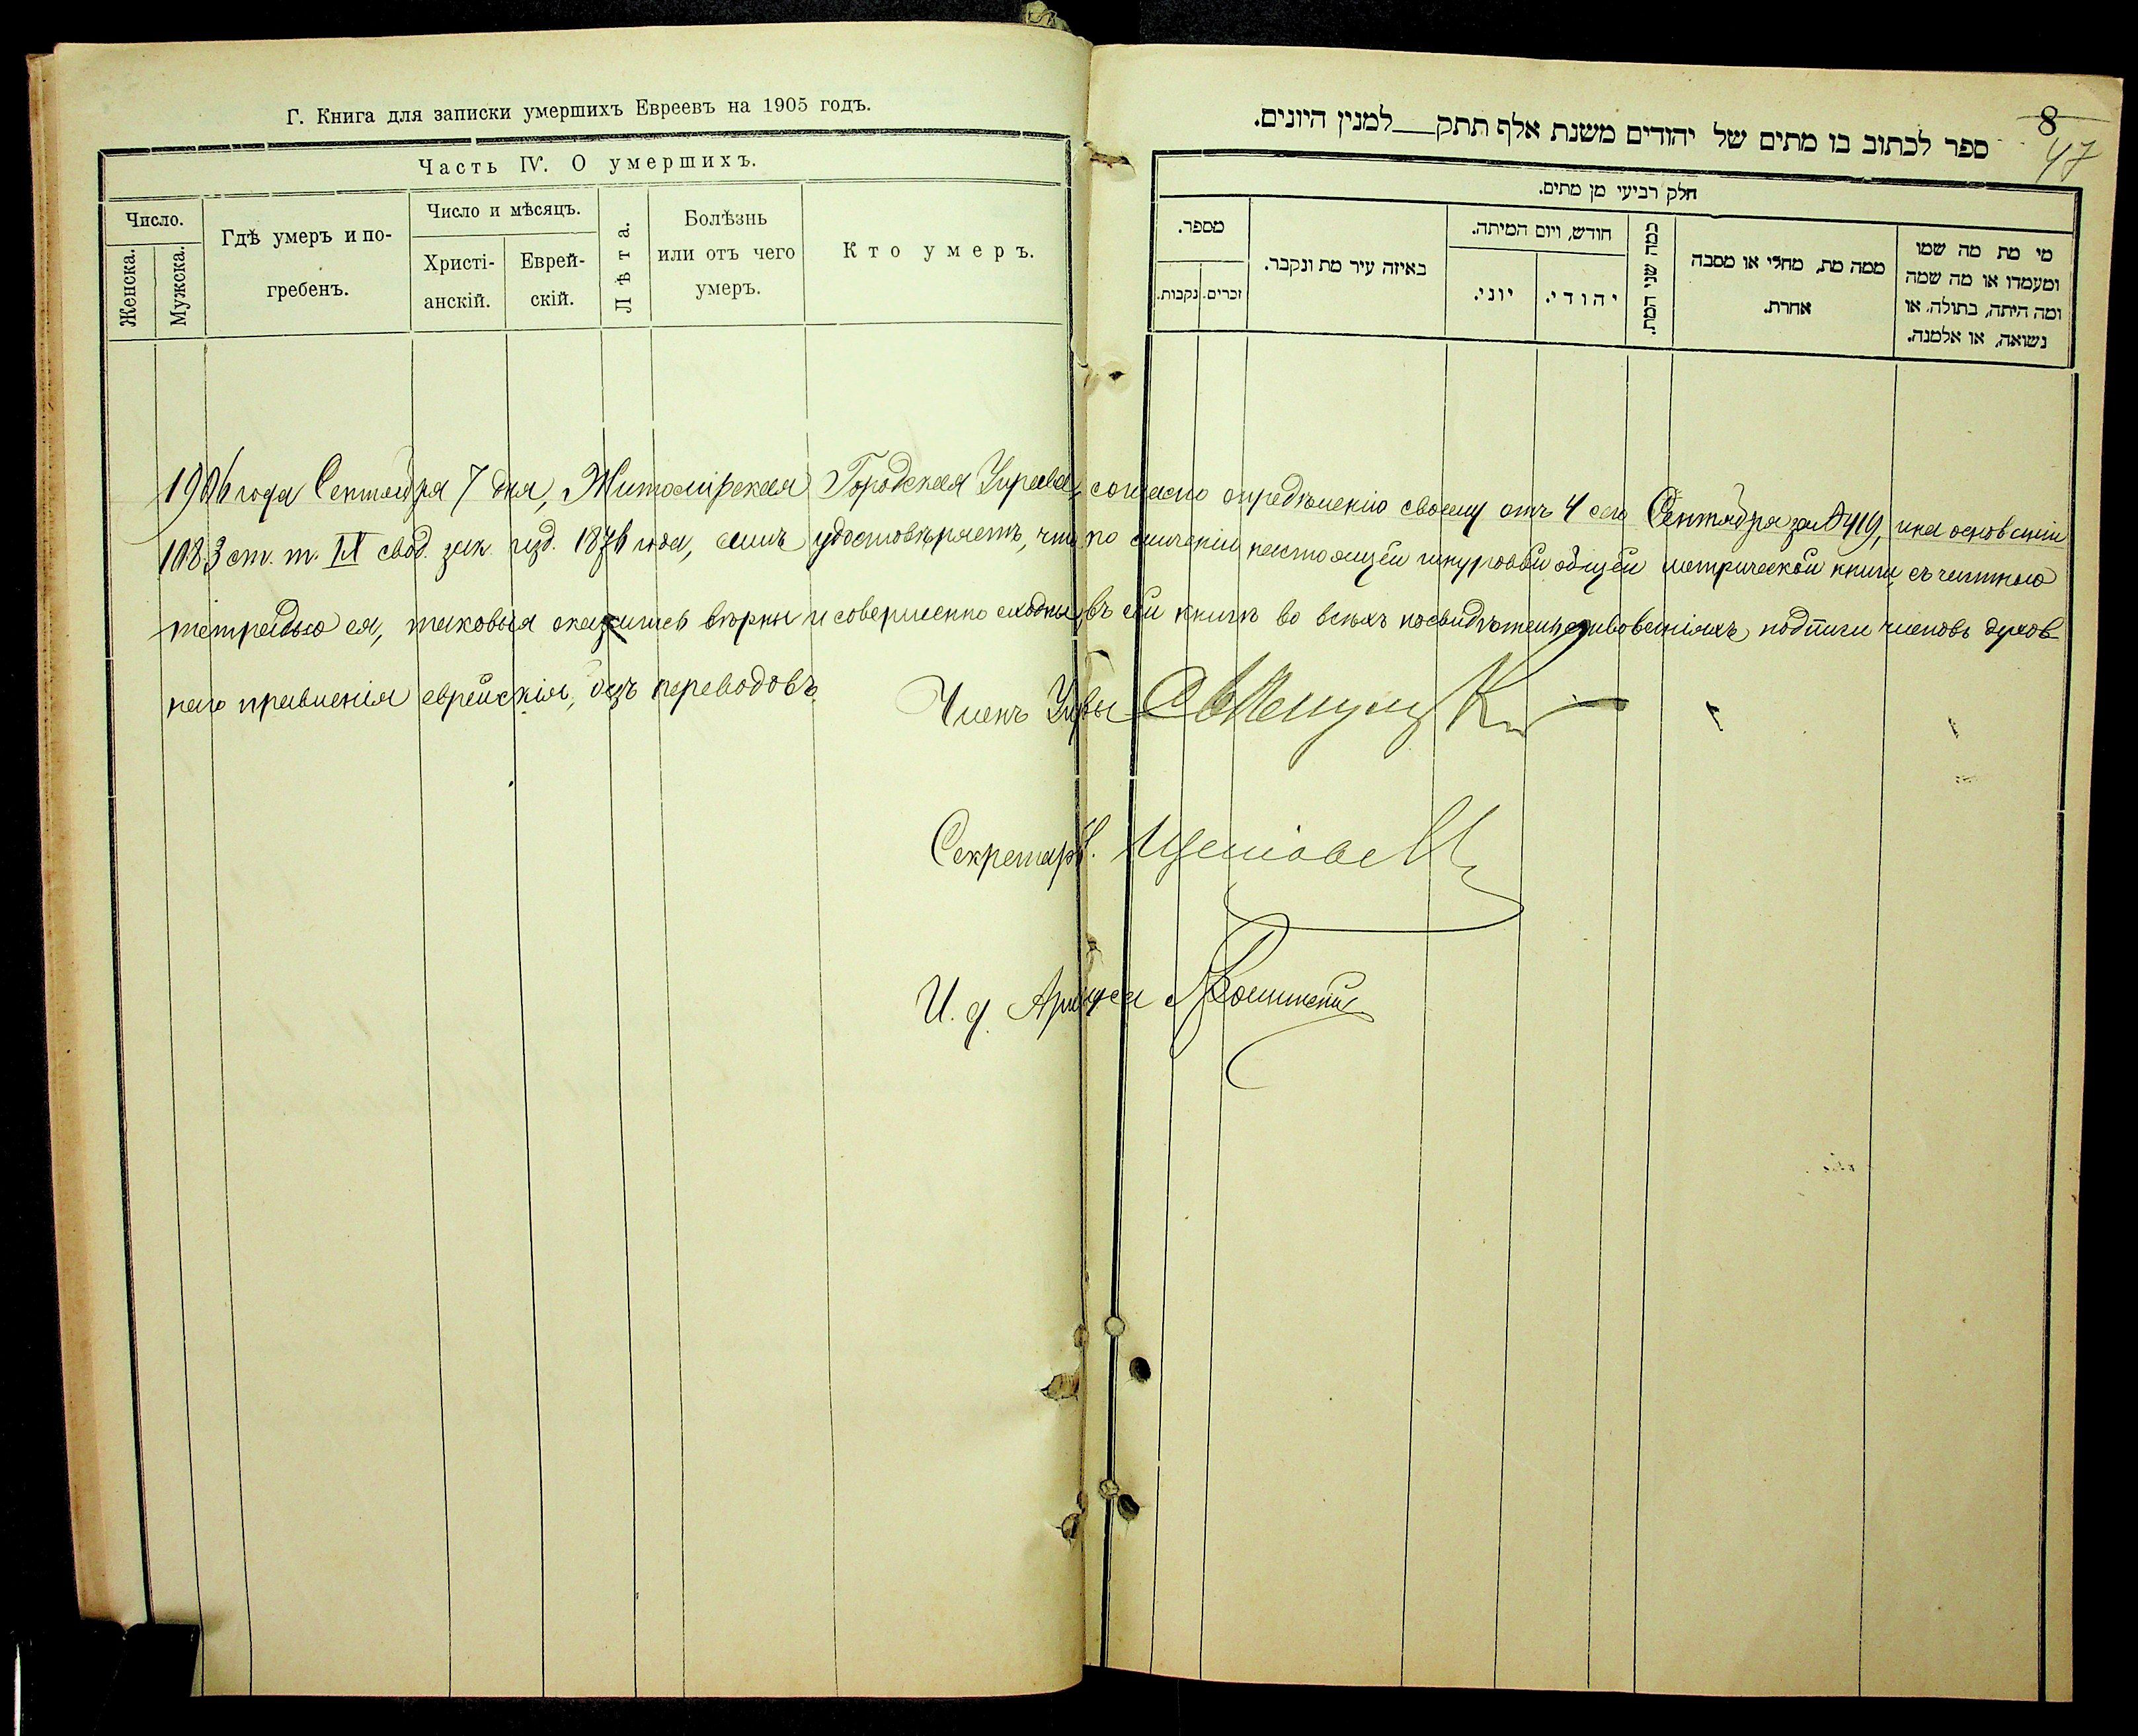 Г. Книга для записки умершихъ Евреевъ на 1905 годъ.
Часть IV. О умершихъ.
Число.
Женска.
Мужска.
Гдѣ умеръ и по-
гребенъ.
Число и мѣсяцъ.
Христі-
анскій.
Еврей-
скій.
Лѣта.
Болѣзнь
или отъ чего
умеръ.
Кто умеръ.
8
47
ספר לכתוב בו מתים של יהודים משנת אלף תתק __ למנין היונים.
חלק רביעי מן מתים.
מספר.
נקבות.
זכרים.
באיזה עיר מת ונקבר.
חודש, ויום המיתה.
יוני.
יהודי.
כמה שני המת.
ממה מת, מחלי או מסבה
אחרת.
מי מת מה שמו
ומעמדו או מה שמה
ומה היתה, בתולה, או
נשואה, או אלמנה.
1906 года Сентября 7 дня, Житомірская Городская Управа, согласно опредѣленію своему отъ 4 сего Сентября за № 419, и на основаніи
1083 ст. т. IX свод. зак. изд. 1876 года, симъ удостовѣряетъ, что по сличеніи настоящей шнуровой общей метрической книги съ частною
тетрадью ея, таковыя оказались вѣрны и совершенно сходны, въ сей книгѣ во всѣхъ подписи членовъ духов-
наго правленія еврейскія, безъ переводовъ.
Членъ Упвы
Секретарь
И. д.